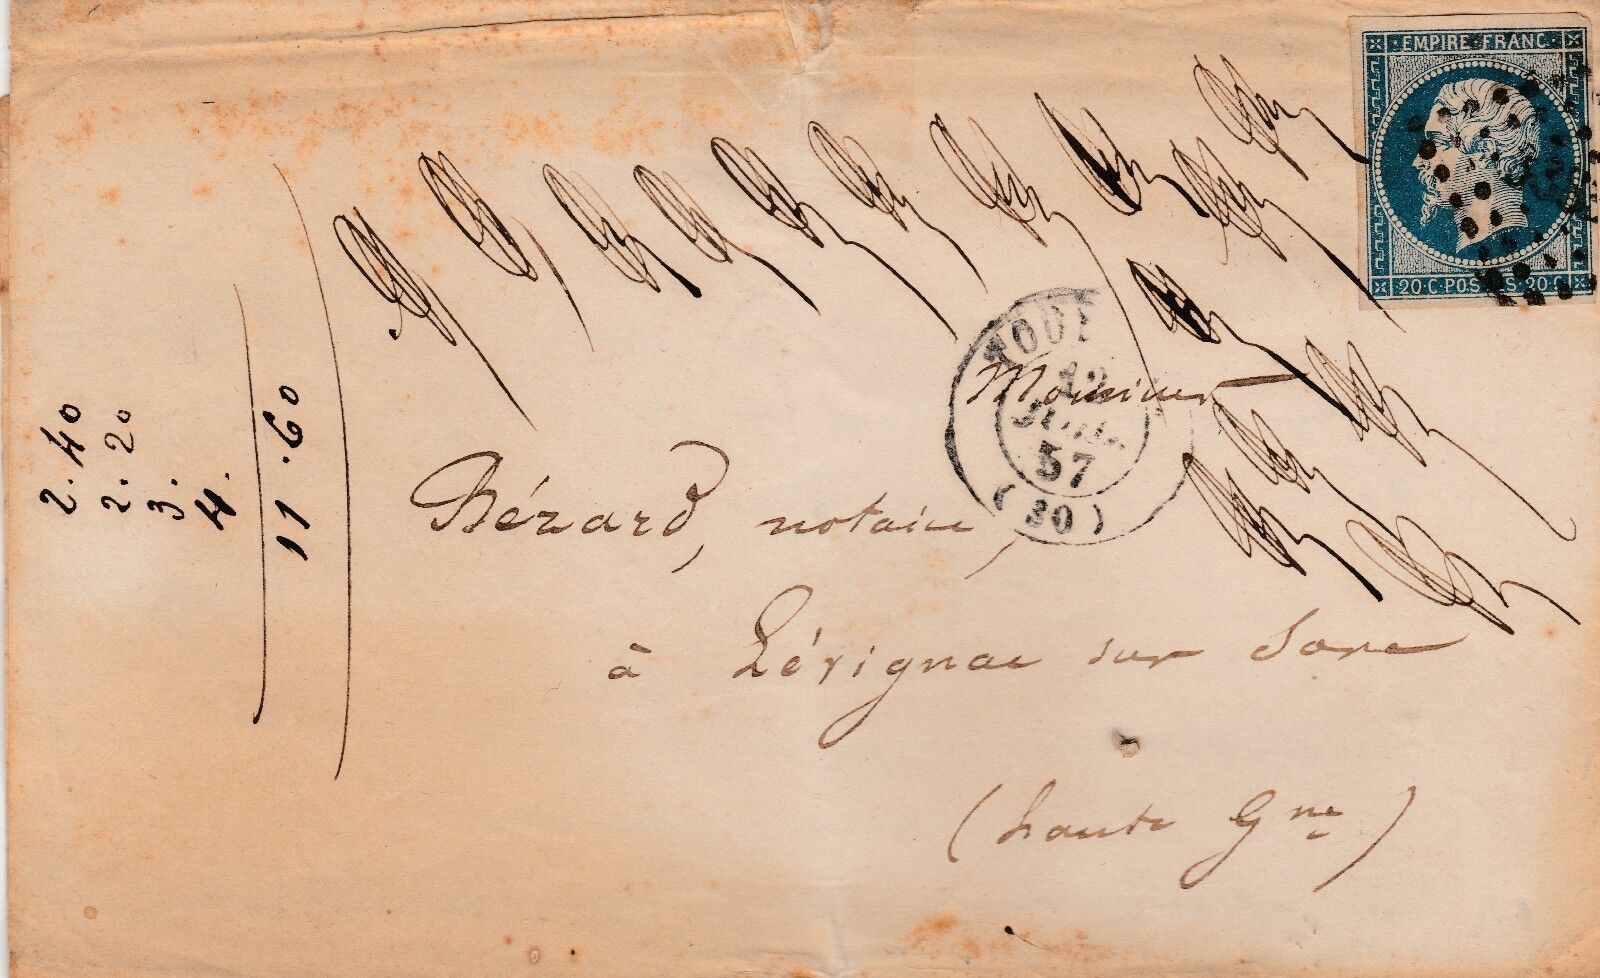 EMPIRE FRANC
20·C·POSTES·20·C
57
(30)
Monsieur
Bérard, notaire,
à Lévignac sur Save
(haute Gne)
2.40
2.20
3.
4.
11.60